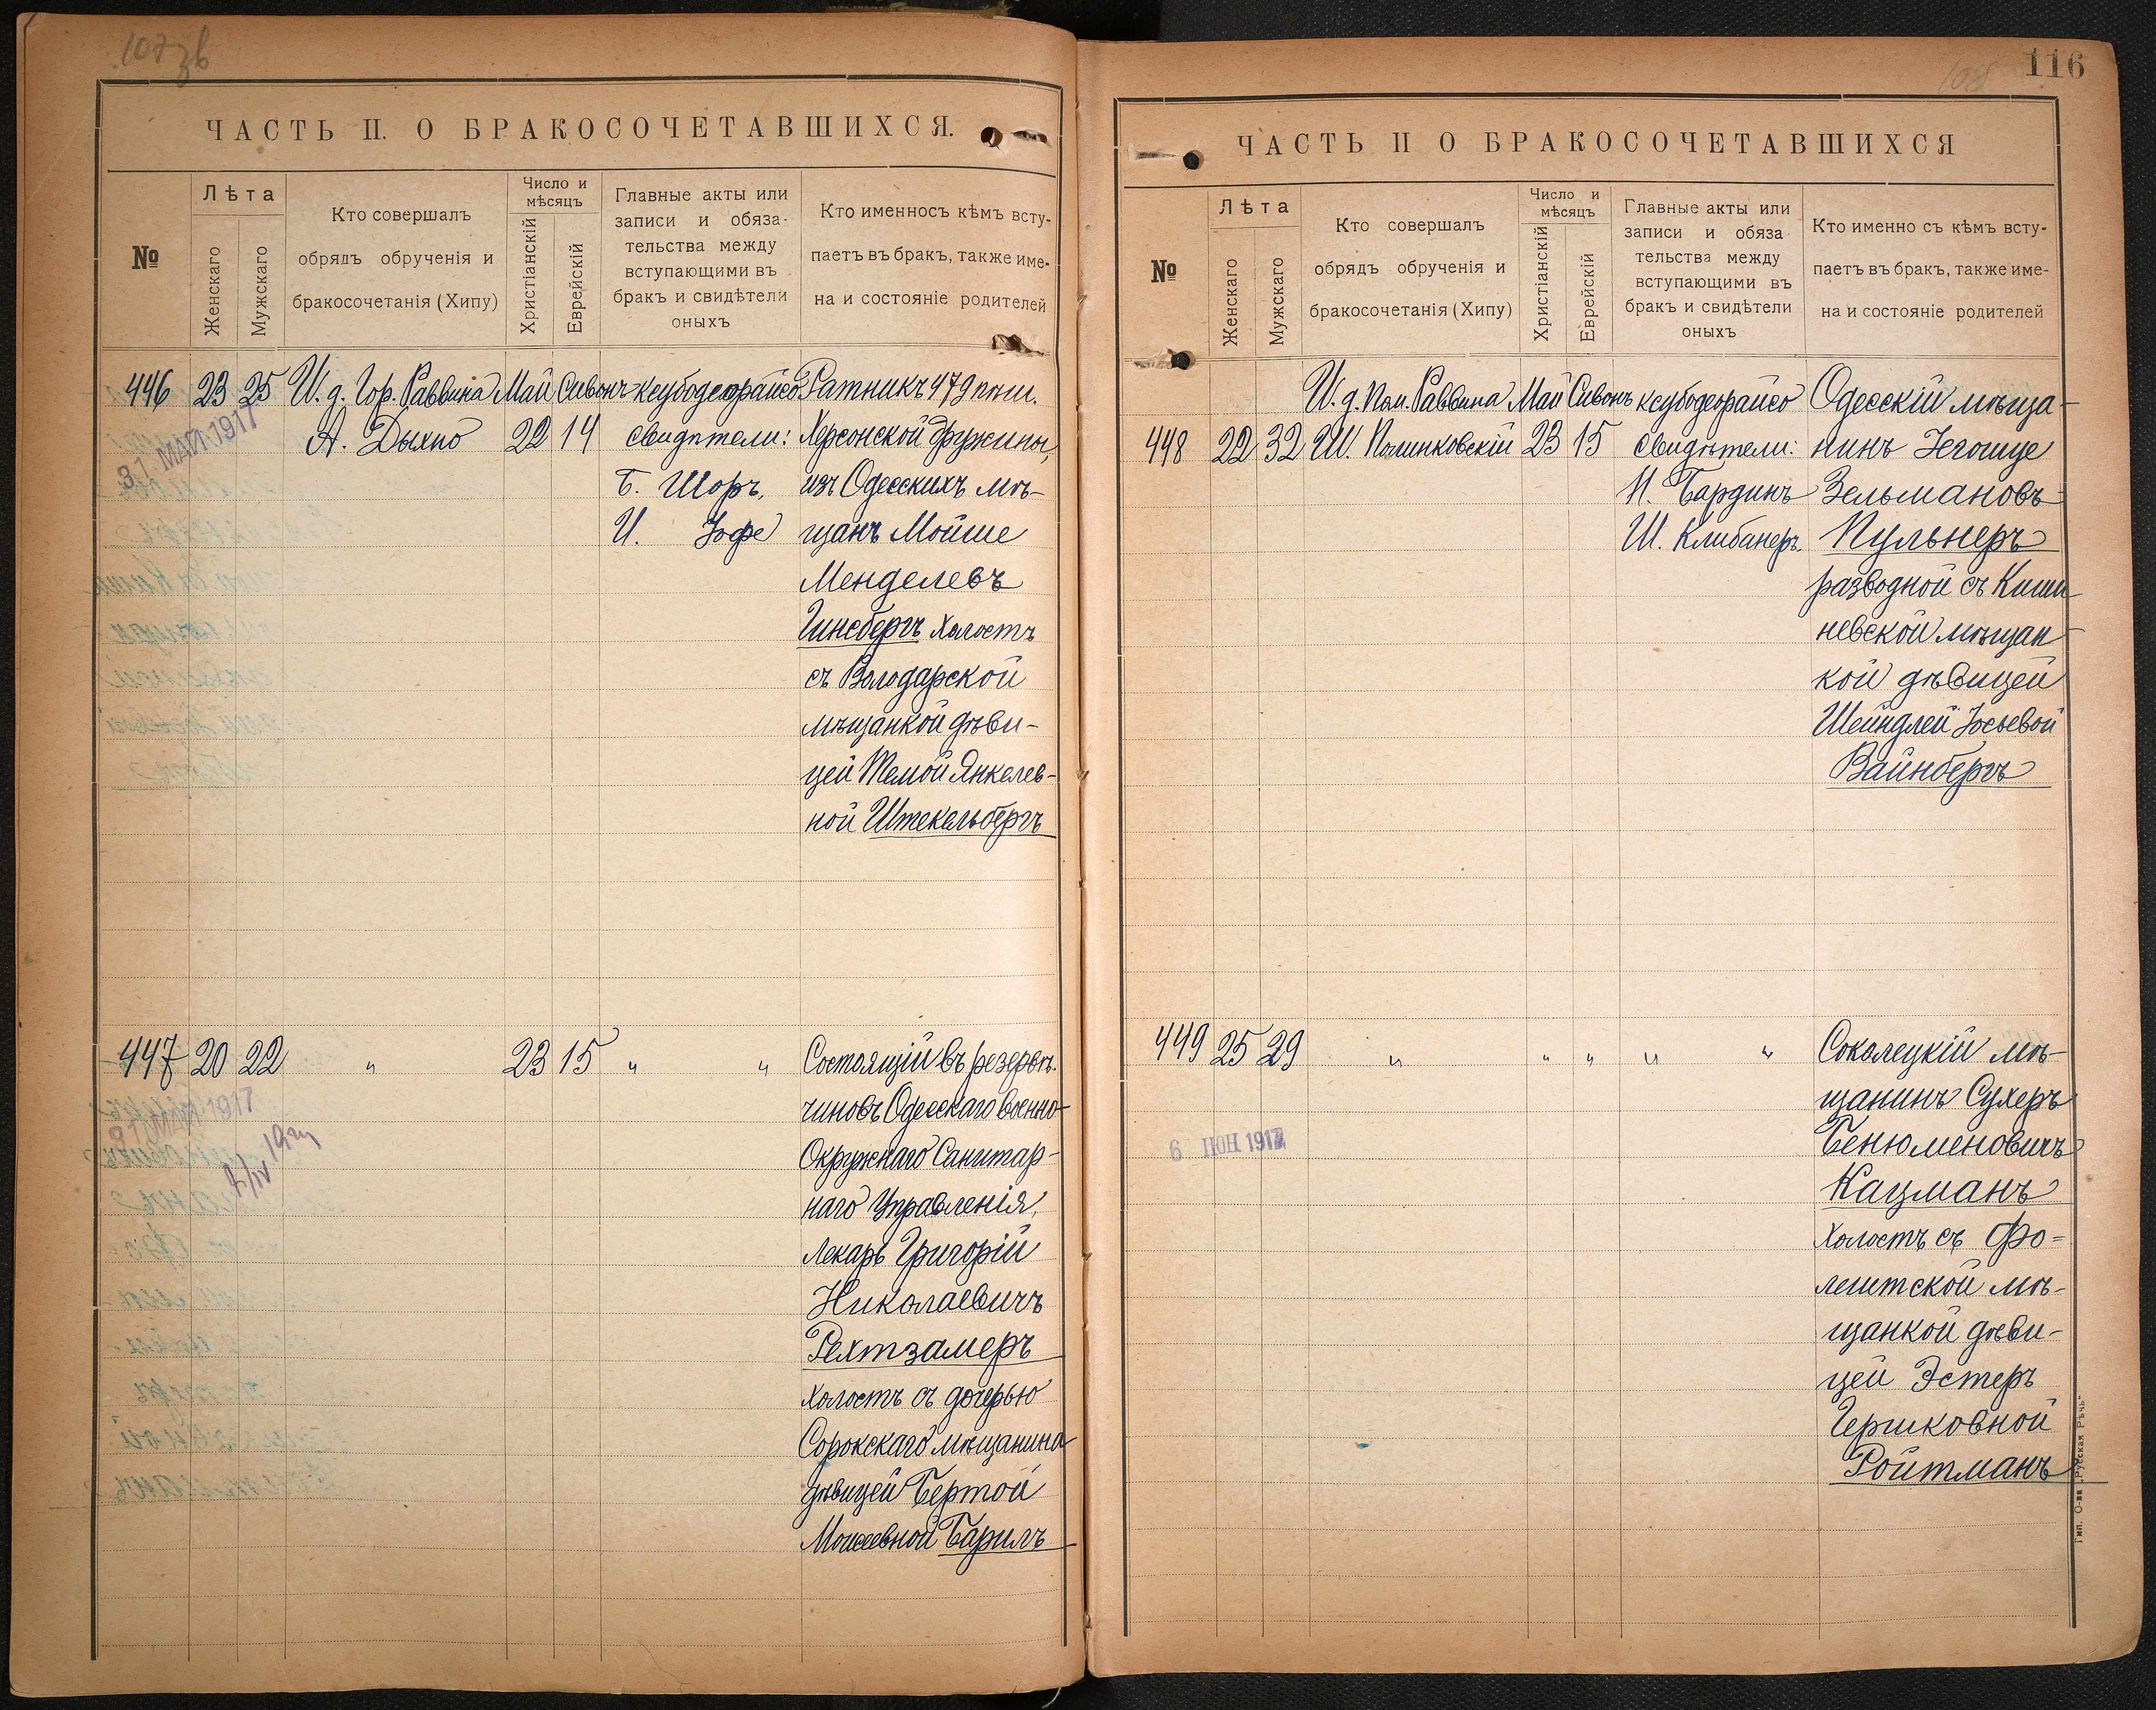 107 зв
ЧАСТЬ II. О БРАКОСОЧЕТАВШИХСЯ.
№
Лѣта
Женскаго
Мужскаго
Кто совершалъ
обрядъ обрученія и
бракосочетанія (Хипу)
Число и
мѣсяцъ
Христіанскій
Еврейскій
Главные акты или
записи и обяза-
тельства между
вступающими въ
бракъ и свидѣтели
оныхъ
Кто именносъ кѣмъ всту-
паетъ въ бракъ, также име-
на и состояніе родителей
446 23 25 И. д. Гор. Раввина Май Сивонъ ксубодеорайсо Ратникъ 479 пѣш.
А. Дыхно 22 14 свидѣтели: Херсонской дружины,
31 МАЙ 1917
Б. Шоръ, изъ Одесскихъ мѣ-
И. Іофе щанъ Мойше
Менделевъ
Гинсбергъ холостъ
съ Володарской
мѣщанкой дѣви-
цей Темой Янкелев-
ной Штекельбергъ
447 20 22 " 23 15 " " Состоящій въ резервѣ
чиновъ Одесскаго Военно-
31 МАЙ 1917
Окружнаго Санитар-
наго Управленія,
Лекарь Григорій
Николаевичъ
Рехтзамеръ
холостъ съ дочерью
Сорокскаго мѣщанина
дѣвицей Бертой
Моисеевной Барилъ
108
116
ЧАСТЬ II О БРАКОСОЧЕТАВШИХСЯ
№
Лѣта
Женскаго
Мужскаго
Кто совершалъ
обрядъ обрученія и
бракосочетанія (Хипу)
Число и
мѣсяцъ
Христіанскій
Еврейскій
Главные акты или
записи и обяза
тельства между
вступающими въ
бракъ и свидѣтели
оныхъ
Кто именно съ кѣмъ всту-
паетъ въ бракъ, также име-
на и состояніе родителей
И. д. Пом. Раввина Май Сивонъ ксубодеорайсо Одесскій мѣща-
448 22 32 Ш. Полинковскій 23 15 свидѣтели: нинъ Іегошуе
Н. Бардинъ Зельмановъ
Ш. Клибанеръ. Пульнеръ
разводной съ Киши-
невской мѣщан-
кой дѣвицей
Шейндлей Іосьевой
Вайнбергъ
449 25 29 " " " " " Соколецкій мѣ-
щанинъ Сухеръ
6 ІЮН 1917
Бенюменовичъ
Кацманъ
холостъ съ Фо-
лештской мѣ-
щанкой дѣви-
цей Эстеръ
Гершковной
Ройтманъ
Тип. О-ва „Русская Рѣчь"